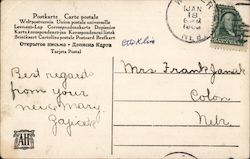 Postkarte Carte postale
Weltpostverein Union postale universelle
Levelező-Lap Correspondenzkarte Dopisnice
Karta korespondencyjna Korespondenční lístek
Briefkaart Cartolina postale Postcard Brefkort
Открытое письмо - Дописна Карта
Tarjeta Postal
JAN
18
NEB.
Best regard
from your
neice Mary
Zajicek
Mrs Frank Janak
Colon
Nebr.